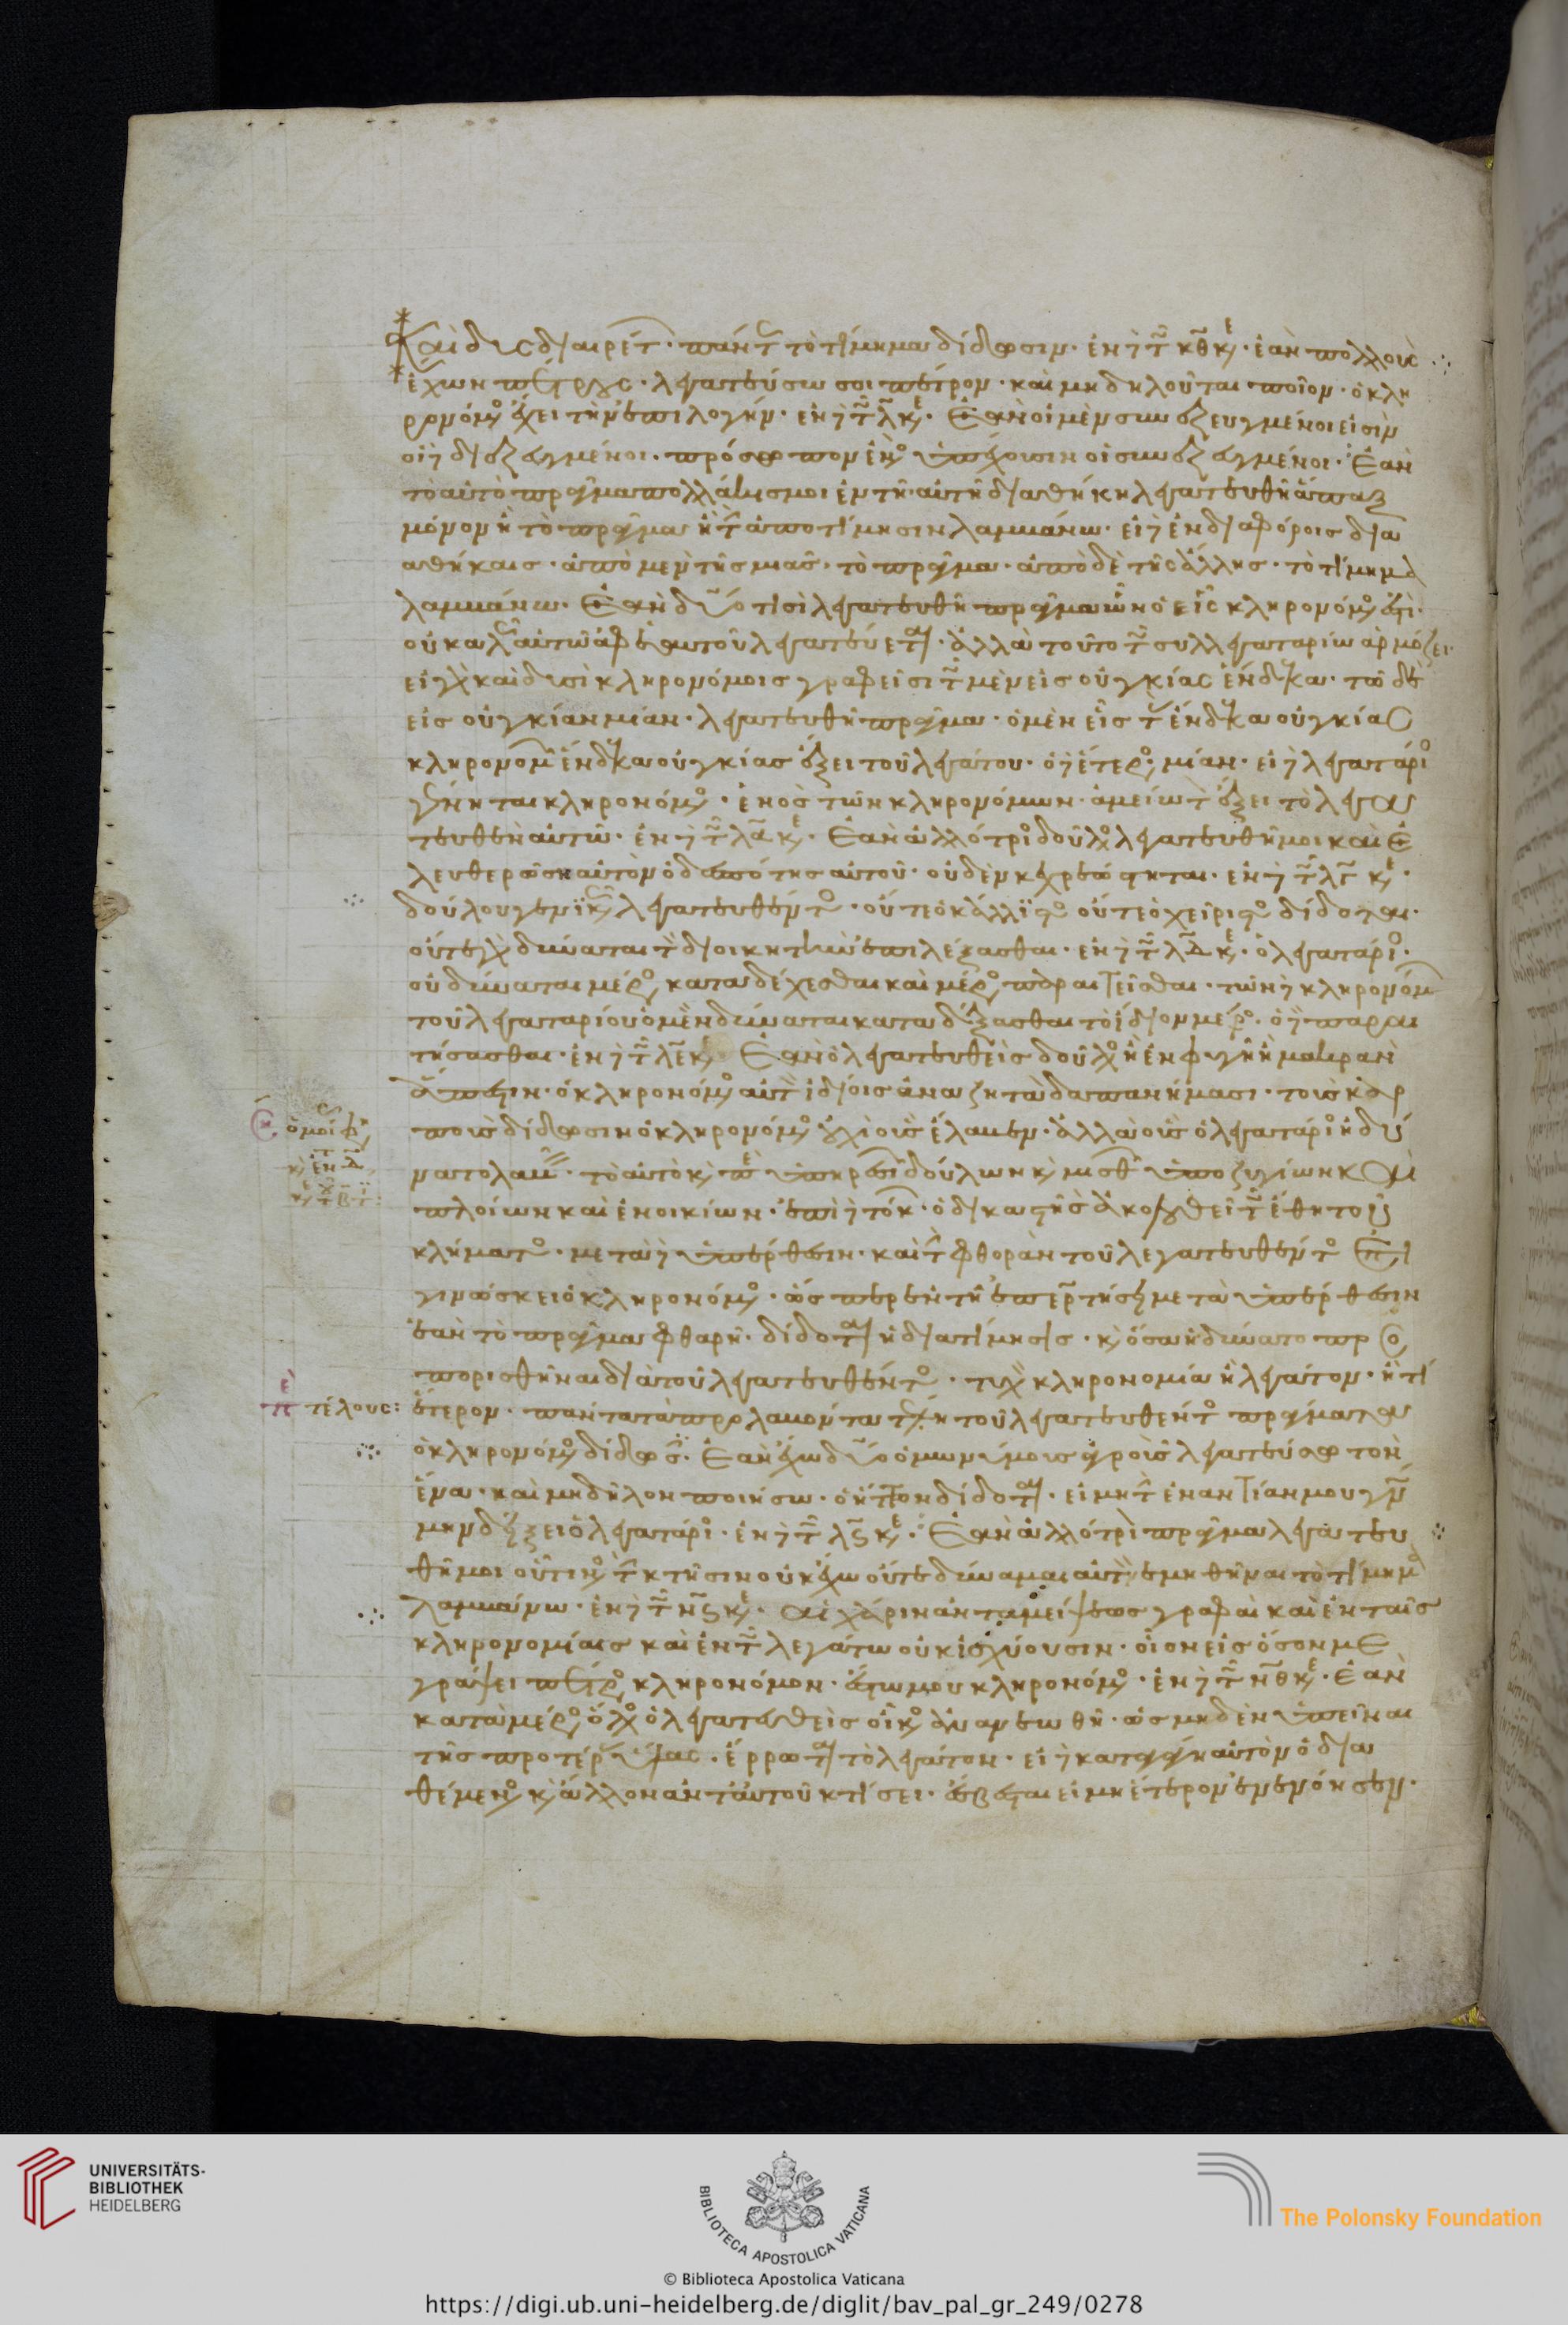 καὶ δυσδιαιρετ · παντ τὸ τίμημα δίδωσιν · ἐν τ κθ κε · ἐὰν πολλοὺς
ἔχων πέτρους · ληγατεύσω σοι πέτρον · καὶ μὴ δηλοῦται ποῖον · ὁ κλη
ρονόμος ἔχει τὴν ἐπιλογήν · ἐν τ λ κε · Ἐὰν οἱ μὲν συνεζευγμένοι εἰσὶν
οἱ διεζευγμένοι · πρόσωπον ἑνὸς ὑπέχουσιν οἱ συνεζευγμένοι · Ἐὰν
τὸ αὐτὸ πρᾶγμα πολλάκις μοι ἐν τῆ αὐτῆ διαθήκη ληγατευθῆ ἅπαξ
μόνον ἢ τὸ πρᾶγμα ἢ τ ἀποτίμησιν λαμβάνω · εἰ ἐν διαφόροις δια
θήκαις · ἀπὸ μὲν τῆς μιᾶς · τὸ πρᾶγμα · ἀπὸ δὲ τῆς ἄλλης · τὸ τίμημα
λαμβάνω · Ἐὰν δυό τισι ληγατευθῆ πρᾶγμα ὧν ὁ εἷς κληρονόμος ἐστι ·
οὐ καλῶς αὐτῶ ἀφ ἑαυτοῦ ληγατεύεται · ἀλλὰ τοῦτο τ συλληγαταρίω ἁρμόζει ·
εἰ γὰρ καὶ δυσὶ κληρονόμοις γραφεῖσι τ μὲν εἰς οὐγκίας ἕνδεκα · τῶ δὲ
εἰς οὐγκίαν μίαν · ληγατευθῆ πρᾶγμα · ὁ μὲν εἰς τ ἕνδεκα οὐγκίας
κληρονομ ἕνδεκα οὐγκίας ἕξει τοῦ ληγάτου · ὁ ἕτερος μίαν · εἰ ληγατάριος
γένηται κληρονόμος · ἑνὸς τῶν κληρονόμων · ἀμείωτ ἕξει τὸ ληγα
τευθὲν αὐτῶ · ἐν τ λα κε · Ἐὰν ἀλλότριος δοῦλος ληγατευθῆ μοι καὶ ἐ
λευθερώση αὐτὸν ὁ δεσπότης αὐτοῦ · οὐδὲν κεχρεώστηται · ἐν τ λγ κε ·
δούλου γενικῶς ληγατευθέντος · οὔτε ὁ κάλλιστος οὔτε ὁ χείριστος δίδοται ·
οὔτε γὰρ δύναται τὸ διοικητὴν ἐπιλέξασθαι · ἐν τ λδ κε · ὁ ληγατάριος ·
οὐ δύναται μέρος καταδέχεσθαι καὶ μέρος παραιτεῖσθαι · τῶν κληρονόμ
τοῦ ληγαταρίου ὁ μὲν δύναται καταδέξασθαι τὸ ἴδιον μέρος · ὁ παραι
τήσασθαι · ἐν τ λε κε · Ἐὰν ὁ ληγατευθεὶς δοῦλος ἢ ἐν φυγῆ ἢ μακρὰν
ἄπεστιν · ὁ κληρονόμος αὐτ ἰδίοις ἀναζητᾶ δαπανήμασι · τοὺς καρ
ποὺς δίδωσιν ὁ κληρονόμος οὐχὶ οὓς ἔλαβεν · ἀλλὰ οὓς ὁ ληγατάριος ἠδύ
νατο λαβ · τὸ αὐτὸ κ ὑπηρεσι δούλων κ μισθ ὑποζυγίων και
πλοίων καὶ ἐνοικίων · ἐπὶ τόκ · ὁ δικαστὴς ἀκολουθεῖ τ ἔθη τοῦ
κλήματος · μετὰ ὑπέρθεσιν · καὶ τ φθορὰν τοῦ λεγατευθέντος ἐπι
γινώσκει ὁ κληρονόμος · ὥσπερ ἐν τῆ ἐπερωτήσει μετὰ ὑπέρθεσιν
ἐὰν τὸ πρᾶγμα φθαρῆ · δίδοται ἡ διατίμησις · κ ὅσα ἠδύνατο προσ
πορισθῆναι διὰ τοῦ ληγατευθέντος · τυχὸν κληρονομία ἢ ληγάτον · ἤ τι
ἕτερον · πάντα τὰ προλαβόντα τύχην τοῦ ληγατευθέντος πράγματα
ὁ κληρονόμος δίδωσ · Ἐὰν ἔχω δύο ὁμωνύμους ἀγροὺς ληγατεύσω τὸν
ἕνα · καὶ μὴ δῆλον ποιήσω · ὁ ἥττον δίδοται · εἰ μὴ τ ἐναντίαν μου γνώ
μην δείξει ὁ ληγατάριος · ἐν τ λϛ κε · Ἐὰν ἀλλότρι πρᾶγμα ληγατευ
θῆ μοι οὗτινος τ κτῆσιν οὐκ ἔχω οὔτε δύναμαι αὐτ ἐμὴ θῆναι τὸ τίμημα
λαμβάνω · ἐν τ νϛ κε · αἱ χάριν ἀνταμείψεως γραφαὶ καὶ ἐν ταῖς
κληρονομίαις καὶ ἐν τ λεγάτω οὐκ ἰσχύουσιν · οἷον εἰς ὅσον με
γράψει πέτρος κληρονόμον · ἔστω μου κληρονόμος · ἐν τ νθ κε · Ἐὰν
κατὰ μέρος ὅλος ὁ ληγατευθεὶς οἶκος ἀνανεωθῆ · ὡς μηδὲν ὑπεῖναι
τῆς προτέρας ὕλης · ἔρρωται τὸ ληγάτον · εἰ κατεάγη αὐτὸν ὁ δια
θέμενος κ ἄλλον ἀντ αὐτοῦ κτίσει · ἔσβεσται εἰ μὴ ἕτερον ἐνενόησεν ·
τέλους :
UNIVERSITÄTS-
BIBLIOTHEK
HEIDELBERG
BIBLIOTECA APOSTOLICA VATICANA
The Polonsky Foundation
© Biblioteca Apostolica Vaticana
https://digi.ub.uni-heidelberg.de/diglit/bav_pal_gr_249/0278